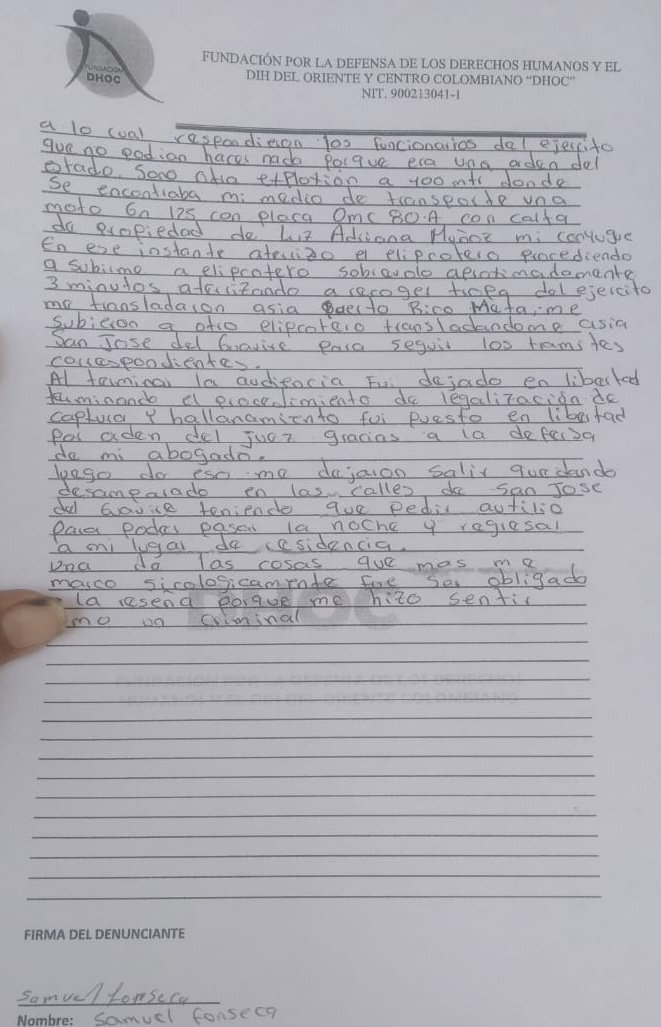 FUNDACIÓN
DHOC
FUNDACIÓN POR LA DEFENSA DE LOS DERECHOS HUMANOS Y EL
DIH DEL ORIENTE Y CENTRO COLOMBIANO “DHOC”
NIT. 900213041-1
a lo cual respondieron los funcionarios del ejercito
que no podian hacer nada porque era una orden del
estado. Sono otra explotión a 400 mtr donde
se encontraba mi medio de transporte una
moto Gn 125 con placa OMC 80.A con carta
de propiedad de luz Adriana Muñoz mi conyugue
En ese instante aterrizo el eliprotero procediendo
a subirme a eliprotero sobrevolo aprotimadamente
3 minutos aterrizando a recoger tropa del ejercito
me transladaron asia Puerto Rico Meta, me
subieron a otro eliprotero transladandome asia
San Jose del Guavire para seguir los tramites
correspondientes.
Al terminar la audiencia Fui dejado en libertad
terminando el procedimiento de legalización de
captura y hallanamiento fui puesto en libertad
por orden del juez gracias a la defensa
de mi abogado.
luego de eso me dejaron salir quedando
desamparado en las calles de San Jose
del Guavire teniendo que pedir autilio
para poder pasar la noche y regresar
a mi lugar de residencia.
una de las cosas que mas me
marco sicologicamente fue ser obligado
la reseña porque me hizo sentir
mo un criminal
DHOC
FIRMA DEL DENUNCIANTE
Samuel fonseca
Nombre: Samuel fonseca